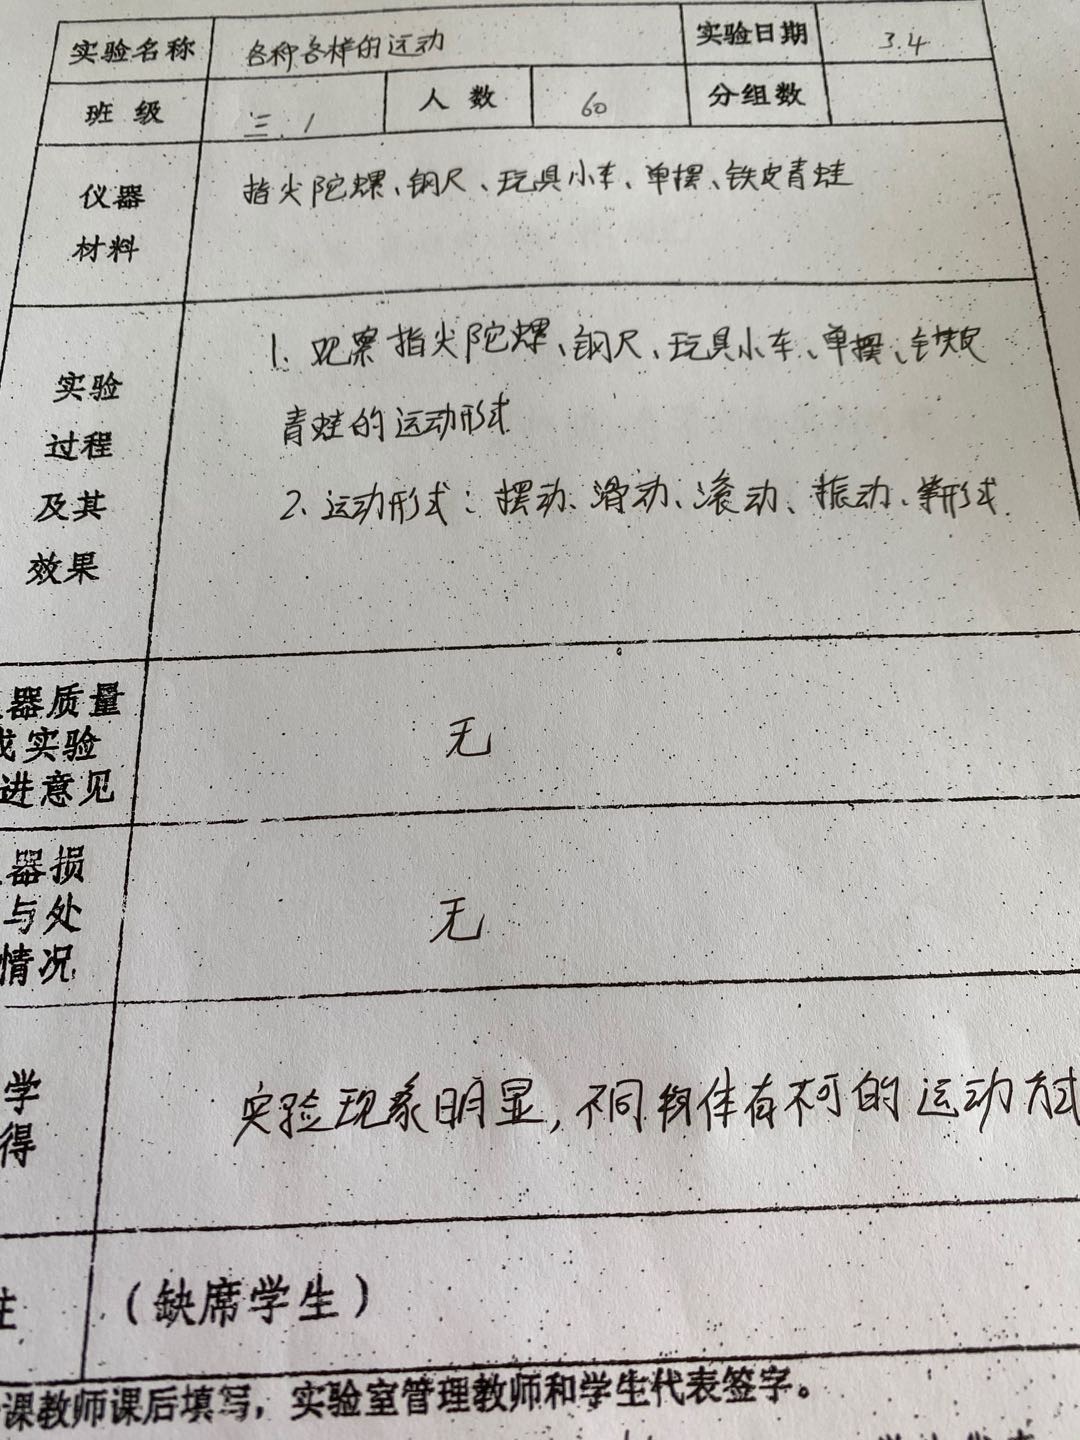 实验名称 各种各样的运动 实验日期 3.4
班级 三.1 人数 60 分组数
仪器
材料
指尖陀螺、钢尺、玩具小车、单摆、铁皮青蛙
实验
过程
及其
效果
1. 观察指尖陀螺、钢尺、玩具小车、单摆、铁皮
青蛙的运动形式
2. 运动形式：摆动、滑动、滚动、振动、等形式.
器质量
或实验
进意见
无
器损
与处
情况
无
学
得
实验现象明显,不同物体有不可的运动方式
注 （缺席学生）
课教师课后填写，实验室管理教师和学生代表签字。